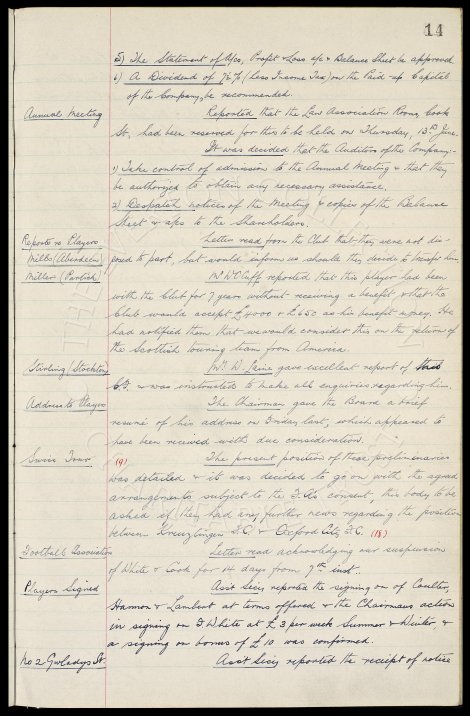 14
5) The Statement of A/cs, Profit & Loss a/c & Balance Sheet be approved
6) A Dividend of 7½% (Less Income Tax) on the Paid-up Capital
of the Company, be recommended.
Annual Meeting Reported that the Law Association Rooms, Cook
St, had been reserved for this to be held on Thursday, 13th June.
It was decided that the Auditors of the Company:-
1) Take control of admission to the Annual Meeting & that they
be authorized to obtain any necessary assistance.
2) Despatch notices of the Meeting & copies of the Balance
Sheet & a/cs to the Shareholders.
Reports re Players
Mills (Aberdeen) Letter read from the Club that they were not dis-
posed to part, but would inform us should they decide to transfer him
Miller (Partick) Mr W.C. Cuff reported that this player had been
with the Club for 7 years without receiving a benefit & that the
Club would accept £4000 & £650 as his benefit money. He
had notified them that we would consider this on the return of
the Scottish touring team from America.
Stirling (Stockton) Mr. D. gave excellent report of this
C.F. & was instructed to make all enquiries regarding him.
Address to Players The Chairman gave the Board a brief
resumé of his address on Friday last, which appeared to
have been received with due consideration.
Swiss Tour (9) The present position of these preliminaries
was detailed & it was decided to go on with the agreed
arrangements subject to the F.A's consent, this body to be
asked if they had any further news regarding the position
between Kreuzlingen F.C. & Oxford City F.C. (18)
Football Association Letter read acknowledging our suspension
of White & Cook for 14 days from 7th inst.
Players Signed Asst Secy reported the signing on of Coulter,
Hannon & Lambert at terms offered & the Chairman's action
in signing on T. White at £3 per week Summer & Winter, &
a signing on bonus of £10 was confirmed.
No 2 Gwladys St. Asst Secy reported the receipt of notice